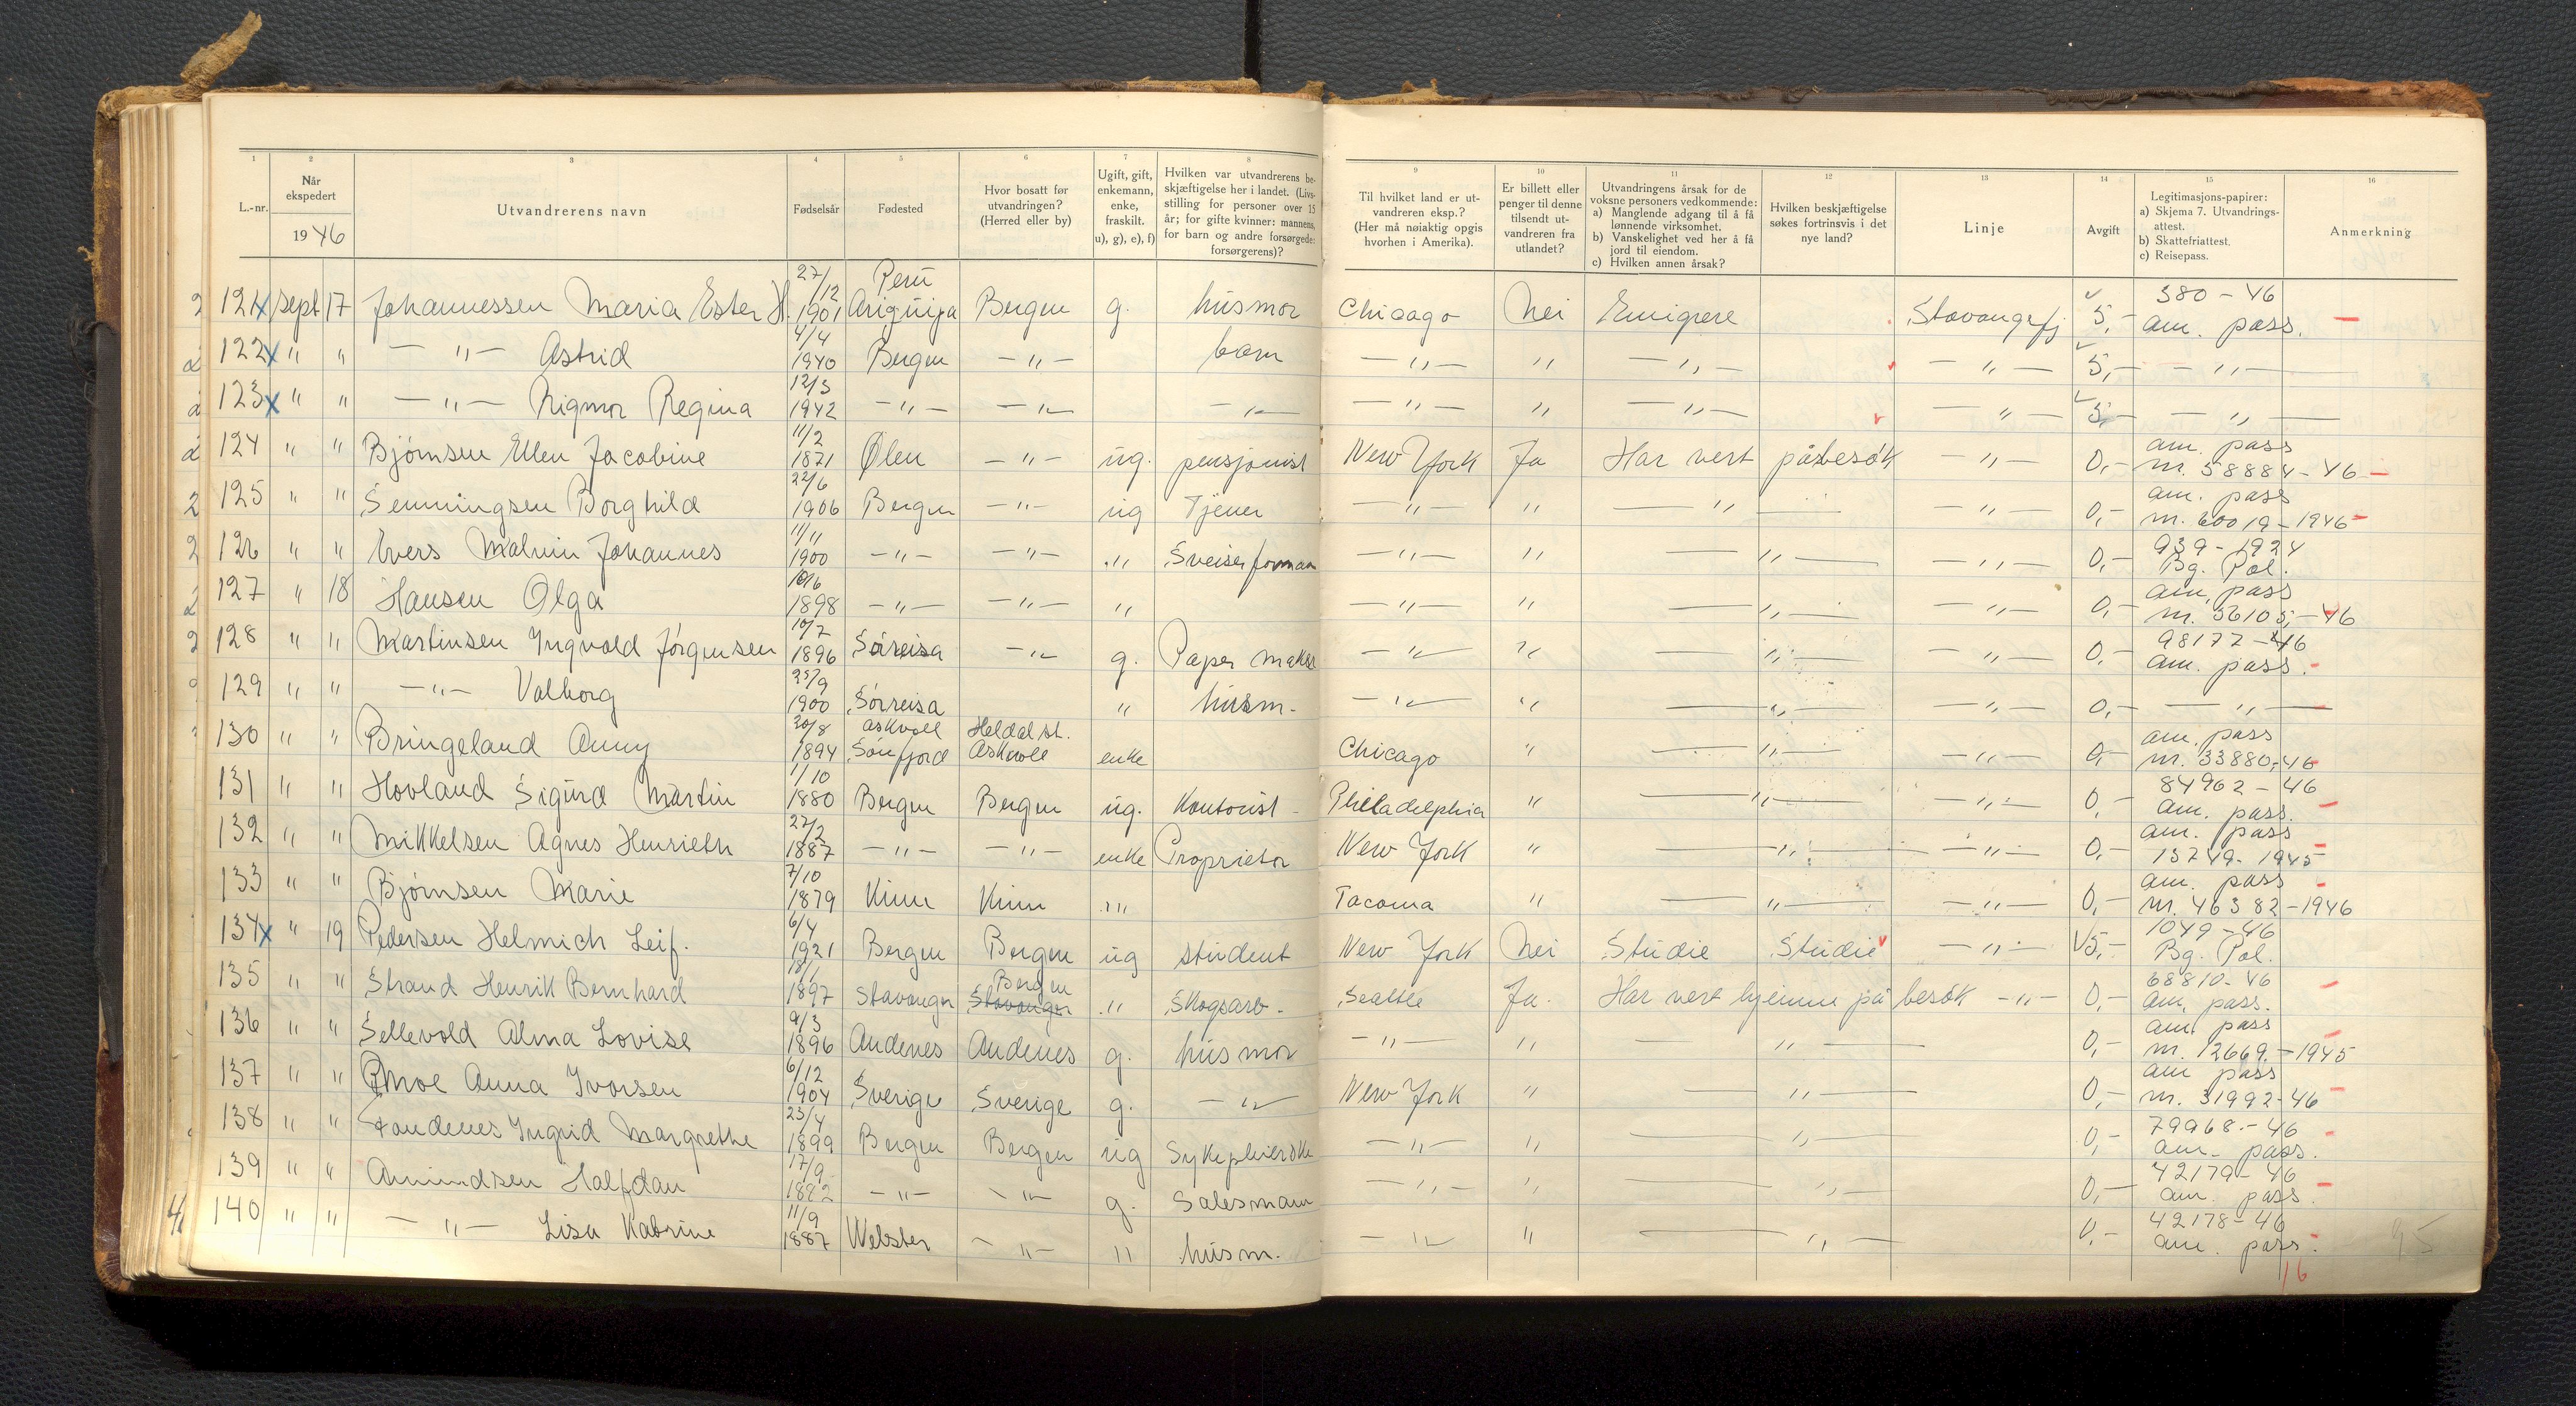 1 2 3 4 5 6 7 8 9 10 11 12 13 14 15 16
L.-nr. Når ekspedert 1946 Utvandrerens navn Fødselsår Fødested Hvor bosatt før utvandringen? (Herred eller by) Ugift, gift, enkemann, enke, fraskilt. u), g), e), f) Hvilken var utvandrerens beskjæftigelse her i landet. (Livsstilling for personer over 15 år; for gifte kvinner: mannens, for barn og andre forsørgede: forsørgerens)? Til hvilket land er utvandreren eksp.? (Her må nøiaktig opgis hvorhen i Amerika). Er billett eller penger til denne tilsendt utvandreren fra utlandet? Utvandringens årsak for de voksne personers vedkommende: a) Manglende adgang til å få lønnende virksomhet. b) Vanskelighet ved her å få jord til eiendom. c) Hvilken annen årsak? Hvilken beskjæftigelse søkes fortrinsvis i det nye land? Linje Avgift Legitimasjons-papirer: a) Skjema 7. Utvandringsattest. b) Skattefriattest. c) Reisepass. Anmerkning
121 x sept 17 Johannessen Maria Ester H. 27/12 1901 Peru Ariquipa Bergen g. husmor Chicago Nei Emigrere Stavangerfj 5,- 380-46 am. pass.
122 x " " -"- Astrid 4/4 1940 Bergen -"- barn -"- " -"- -"- 5,- -"-
123 x " " -"- Rigmor Regina 12/3 1942 -"- -"- -"- -"- " -"- -"- 5,- -"-
124 " " Bjørnsen Ellen Jacobine 11/2 1871 Ølen -"- ug. pensjonist New York Ja Har vert på besøk -"- 0,- am. pass nr. 58884-46
125 " " Henningsen Borghild 22/6 1906 Bergen -"- ug Tjener -"- " -"- -"- 0,- am. pass nr. 60019-1946
126 " " Evers Malvin Johannes 11/11 1900 -"- -"- " Sveiser forman -"- " -"- -"- 0,- 939-1924 Bg. Pol.
127 " 18 Hansen Olga 1898 -"- -"- " -"- " -"- -"- 0,- am. pass nr. 56105,-46
128 " " Martinsen Ingvald Jørgensen 10/7 1896 Sørreisa -"- g. Paper maker -"- " -"- -"- 0,- 98177-46 am. pass.
129 " " -"- Valborg 1900 Sørreisa " husm. -"- " -"- -"- 0,- -"-
130 " " Bringeland Anny 20/8 1894 Askvoll Sunnfjord Heldal st. Askvoll enke Chicago " -"- -"- 0,- am. pass nr. 33880-46
131 " " Hovland Sigurd Martin 1/10 1880 Bergen Bergen ug. Kontorist Philadelphia " -"- -"- 0,- 84962-46 am. pass.
132 " " Mikkelsen Agnes Henriette 27/2 1887 -"- -"- enke Proprietor New York " -"- -"- 0,- am. pass 13749-1945
133 " " Bjørnsen Marie 7/10 1879 Kinn Kinn " Tacoma " -"- -"- 0,- am. pass nr. 46382-1946
134 x " 19 Pedersen Helmich Leif. 6/4 1921 Bergen Bergen ug student New York Nei Studie Studie -"- 5,- 1049-46 Bg. Pol.
135 " " Strand Henrik Bernhard 18/1 1897 Stavanger Bergen Stavanger " Skogsarb. Seattle Ja. Har vert hjemme på besøk -"- 0,- 68810-46 am. pass.
136 " " Sellevold Alma Lovise 9/3 1896 Andenes Andenes g. husmor -"- " " 0,- am. pass nr. 12669.-1945
137 " " Moe Anna Ivorsen 6/12 1904 Sverige Sverige g. -"- New York " -"- 0,- am pass nr. 31992-46
138 " " Ingrid Margrethe 23/4 1899 Bergen Bergen ug Sykepleierske -"- " -"- 0,- 79968.-46 am. pass.
139 " " Amundsen Halfdan 17/9 1882 -"- -"- g. Salesmann -"- " -"- 0,- 42179-46 am. pass.
140 " " -"- Lisa Katrine 11/9 1887 Webster -"- " husm. -"- " -"- 0,- 42178-46 am. pass.
16
95